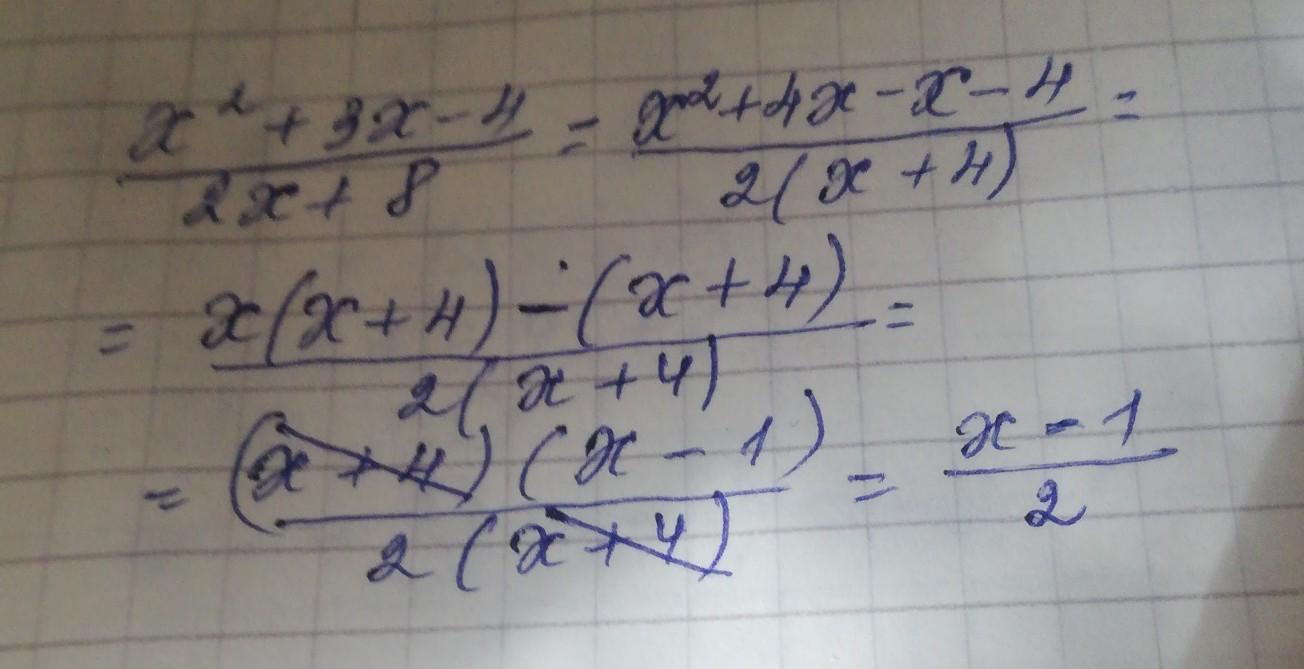 (x² + 3x - 4)/(2x + 8) = (x² + 4x - x - 4)/(2(x + 4)) =
= (x(x + 4) - (x + 4))/(2(x + 4)) =
= ((x + 4)(x - 1))/(2(x + 4)) = (x - 1)/2